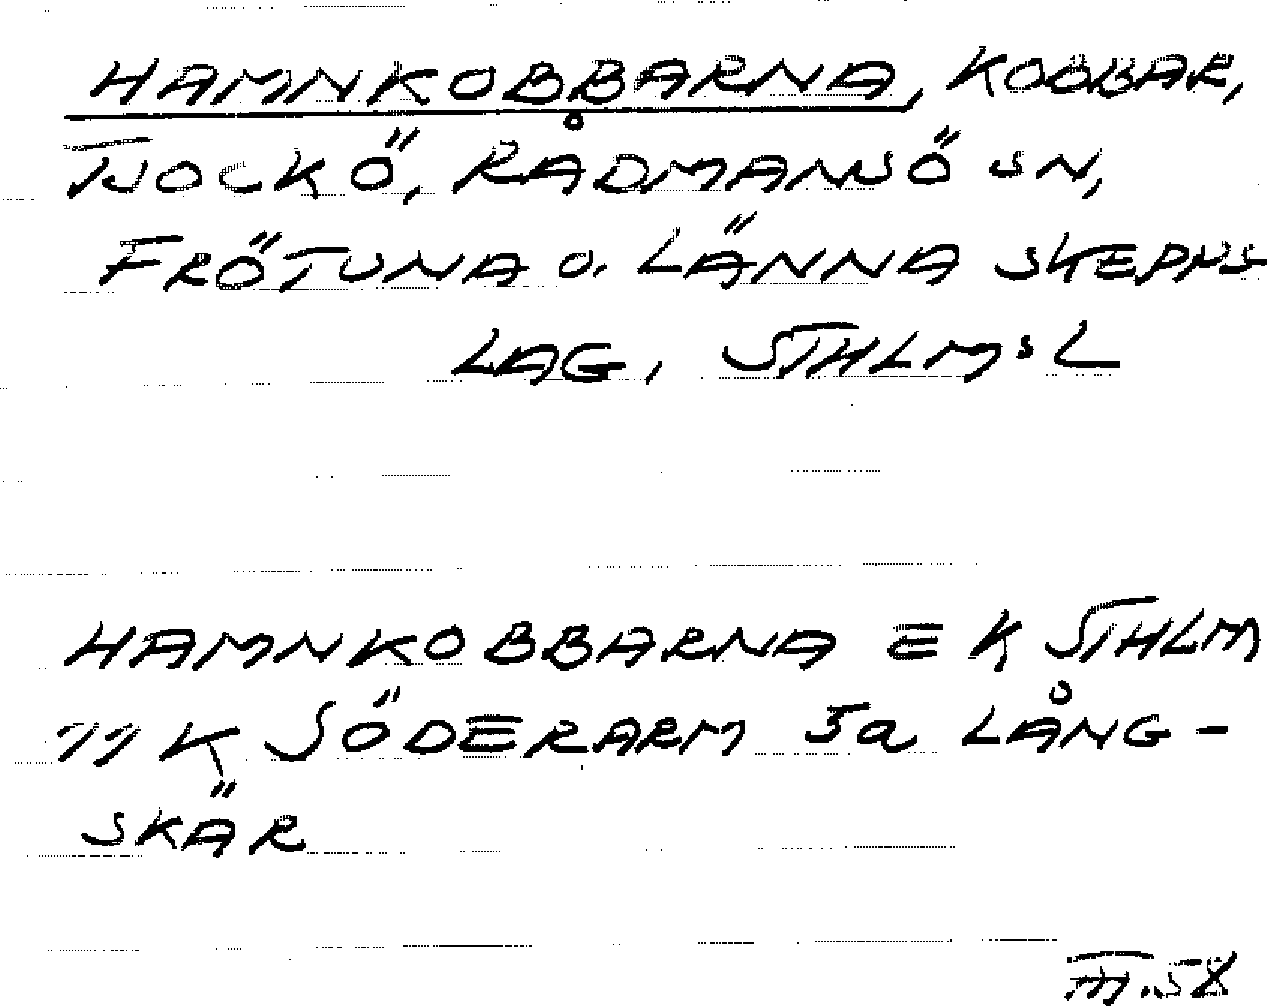 HAMNKOBBARNA, KOBBAR,
TJOCKÖ, RÅDMANSÖ SN,
FRÖTUNA O. LÄNNA SKEPPS
LAG, STHLMS L
HAMNKOBBARNA E K STHLM
11 K SÖDERARM 5a LÅNG-
SKÄR